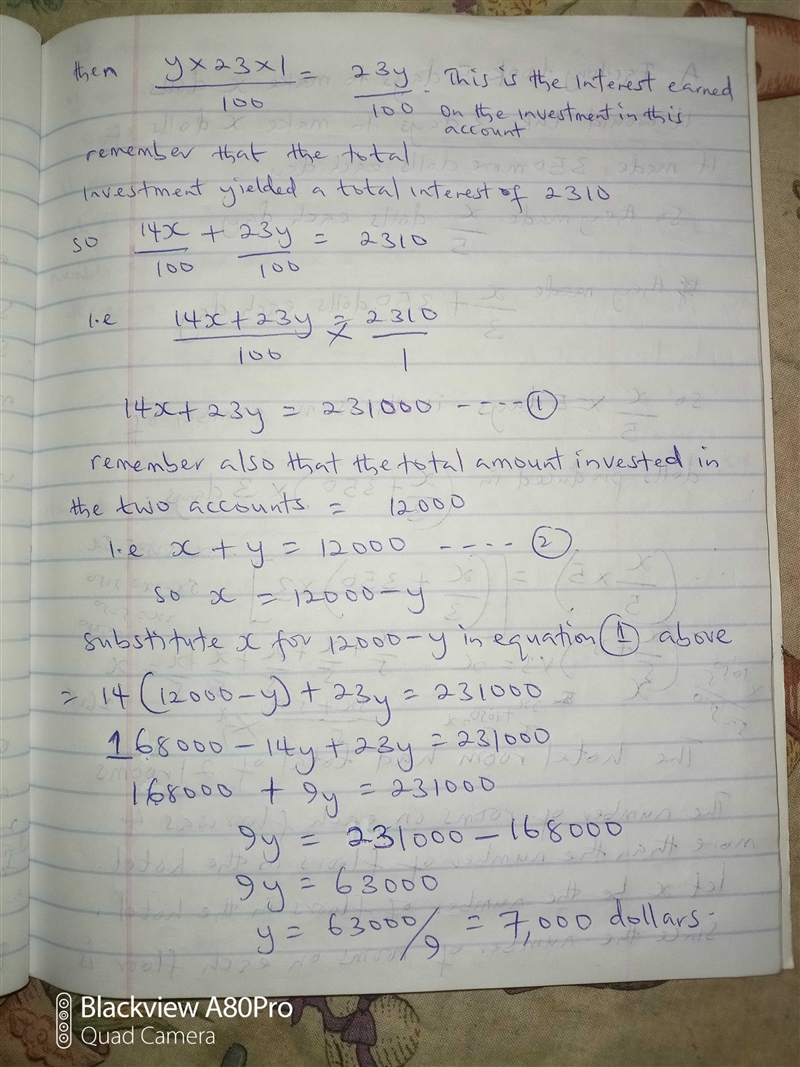 then y×23×1/100 = 23y/100. This is the interest earned
on the investment in this
account
remember that the total
investment yielded a total interest of 2310
so 14x/100 + 23y/100 = 2310
i.e 14x+23y/100 = 2310/1
14x+23y = 231000 ---- ①
remember also that the total amount invested in
the two accounts = 12000
i.e x + y = 12000 ---- ②
so x = 12000-y
substitute x for 12000-y in equation ① above
= 14(12000-y) + 23y = 231000
168000 - 14y + 23y = 231000
168000 + 9y = 231000
9y = 231000 - 168000
9y = 63000
y = 63000/9 = 7,000 dollars.
Blackview A80Pro
Quad Camera